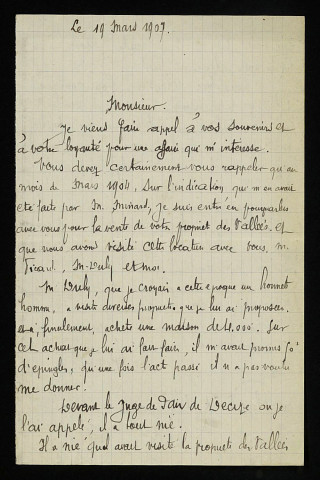 Le 19 Mars 1907.
Monsieur.
Je viens faire appel à vos souvenirs et
à votre loyauté pour une affaire qui m'interesse.
Vous devez certainement vous rappeler qu'au
mois de Mars 1904, sur l'indication qui m'en avait
été faite par M. Minard, je suis entré en pourparlers
avec vous pour la vente de votre propriet des Vallées, et
que nous avons visité cette location avec vous, M.
Picard, M. Duly et moi.
M. Duly, que je croyais a cette epoque un honnet
homm, a visité diverses proprietes que je lui ai proposées.
et a, finalement, acheté une maison de 4.000. Sur
cet achat que je lui ai fait faire, il m'avait promis 50f
d'epingles, qu'une fois l'act passé il n'a pas voulu
me donner.
Devant le Juge de Paix de Decize ou je
l'ai appelé, il a tout nié.
Il a nié qu'il avait visité la propriete des Vallées